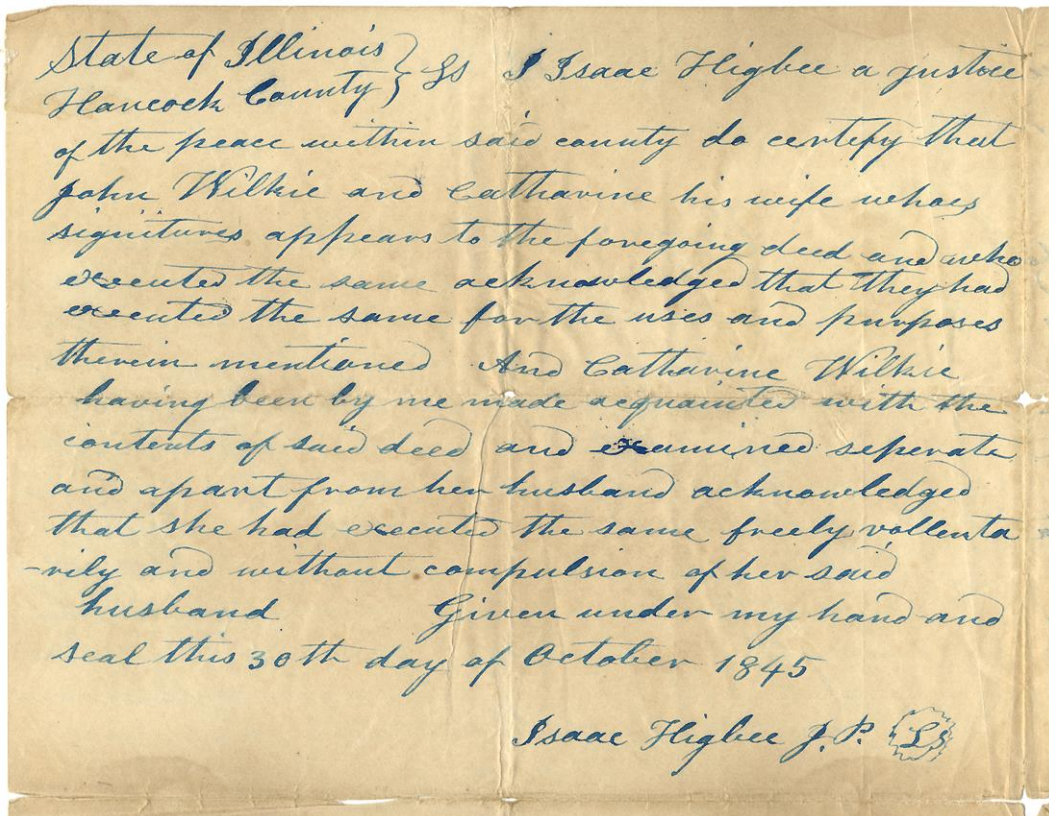 State of Illinois } SS I Isaac Higbee a justice
Hancock County }
of the peace within said county do certefy that
John Wilkie and Catharine his wife whoes
signitures appears to the foregoing deed and who
executed the same acknowledged that they had
executed the same for the uses and purposes
therein mentioned And Catharine Wilkie
having been by me made acquainted with the
contents of said deed and examined seperate
and apart from her husband acknowledged
that she had executed the same freely vollenta
-rily and without compulsion of her said
husband Given under my hand and
seal this 30th day of October 1845
Isaac Higbee J. P. LS